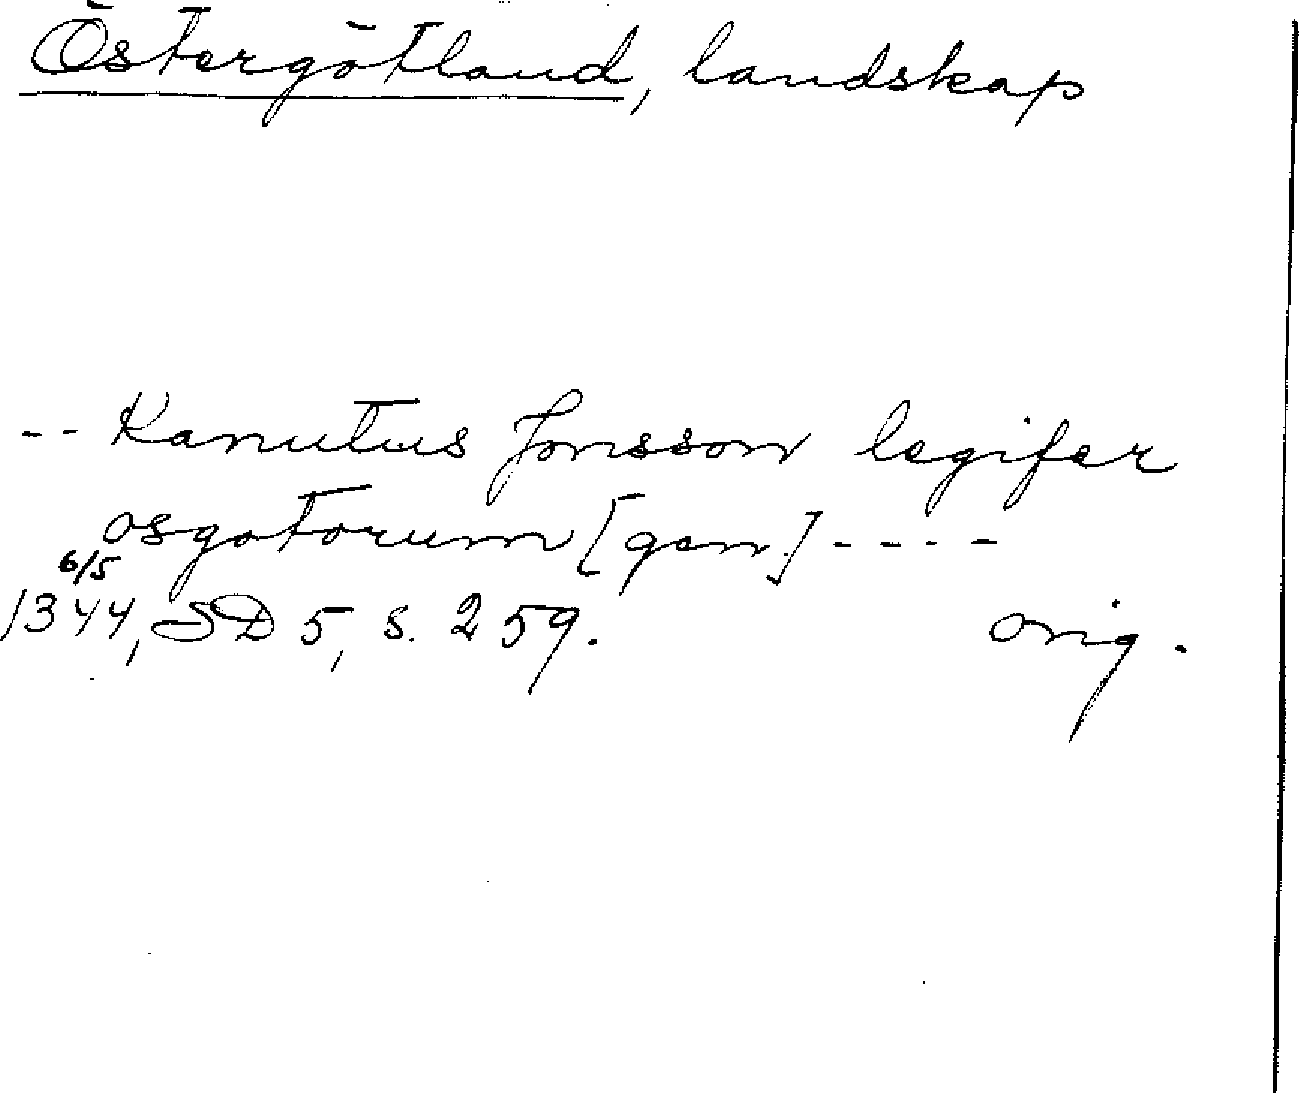 Östergötland, landskap
-- Kanutus Jonsson legifer
osgotorum [gen.] ----
6/5
1344, SD 5, s. 259. orig.